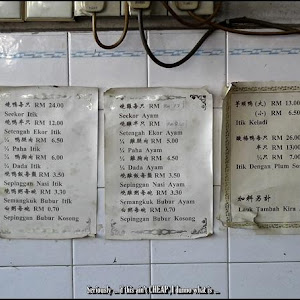 燒鴨每只 RM 24.00
Seekor Itik
燒鴨半只 RM 12.00
Setengah Ekor Itik
¼ 鴨腿肉 RM 6.50
¼ Paha Itik
¼ 鴨胸肉 RM 6.00
¼ Dada Itik
燒鴨飯每盤 RM 3.50
Sepinggan Nasi Itik
燒鴨粥每碗 RM 3.30
Semangkuk Bubur Itik
白粥每碗 RM 0.70
Sepinggan Bubur Kosong
燒雞每只 RM
Seekor Ayam
燒雞半只 RM
Setengah Ekor Ayam
¼ 雞腿肉 RM 6.50
¼ Paha Ayam
¼ 雞胸肉 RM 6.00
¼ Dada Ayam
燒雞飯每盤 RM 3.50
Sepinggan Nasi Ayam
燒雞粥每碗 RM 3.30
Semangkuk Bubur Ayam
白粥每碗 RM 0.70
Sepinggan Bubur Kosong
芋頭鴨(大) RM 13.00
(小) RM 6.50
Itik Keladi
酸梅鴨每只 RM 26.00
半只 RM 13.00
¼只 RM 7.00
Itik Dengan Plum Sa
加料另計
Lauk Tambah Kira
Seriously... if this ain't CHEAP, I dunno what is ...